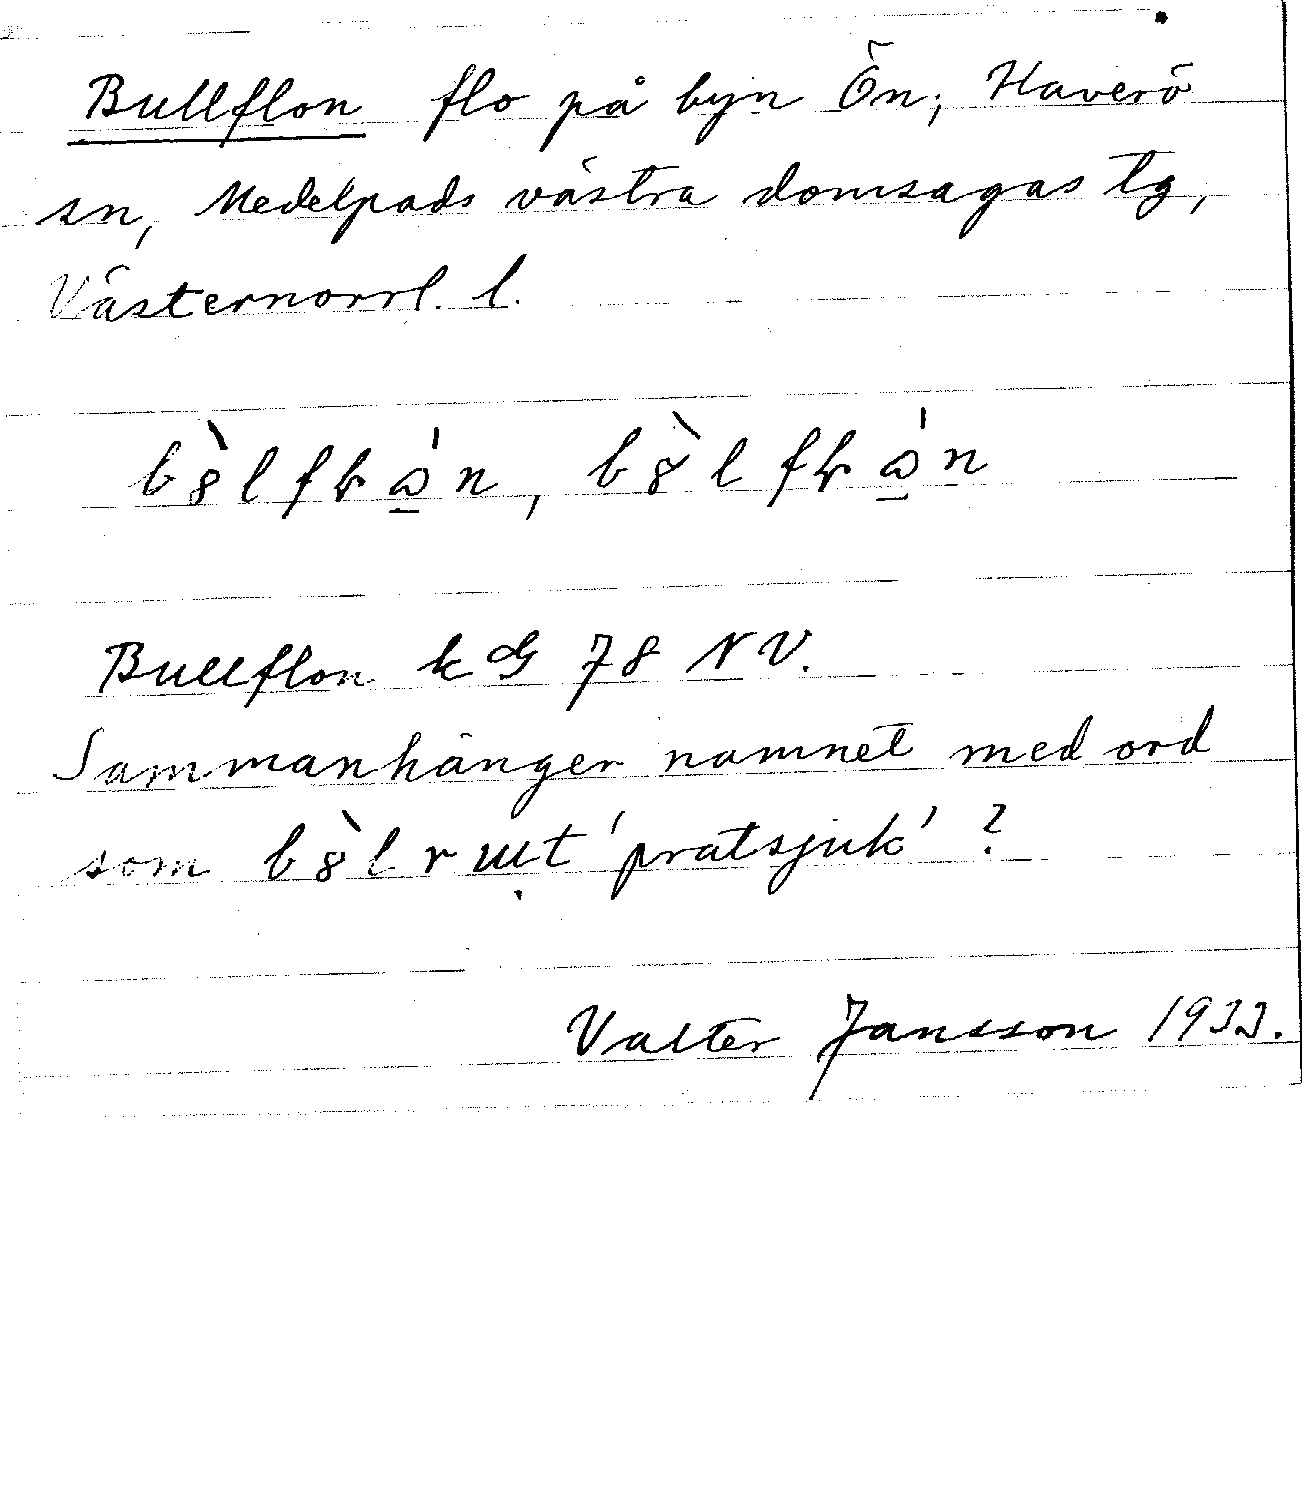 Bullflon flo på byn Ön; Haverö
sn, Medelpads västra domsagas tg,
Västernorrl. l.
Bullflon k G 78 NV.
Sammanhänger namnet med ord
som 'pratsjuk' ?
Valter Jansson 1933.